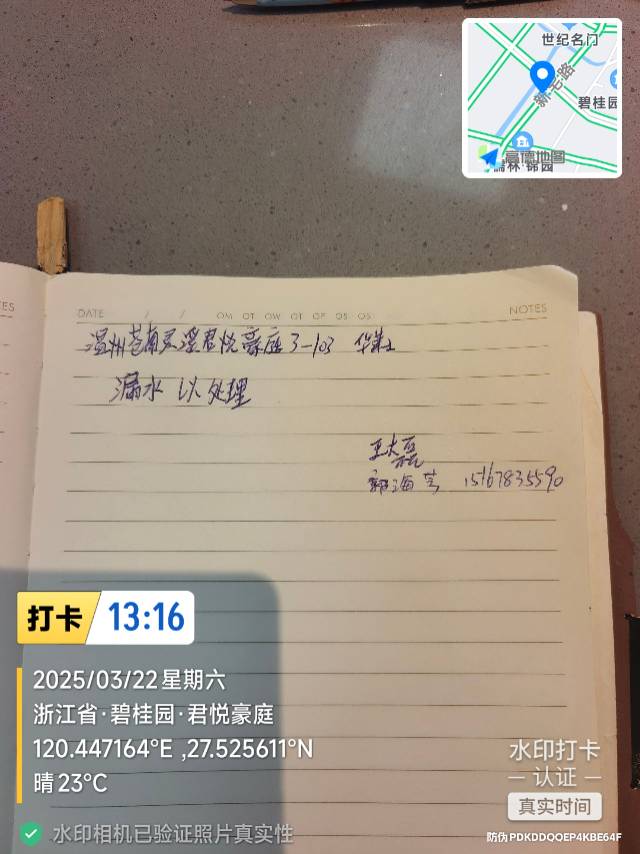 世纪名门
新老路
碧桂园
高德地图
锦园
ES
DATE / /
NOTES
温州苍南灵溪君悦豪庭3-103
漏水 以处理
王大磊
郭海芳 15167835590
打卡 13:16
2025/03/22 星期六
浙江省·碧桂园·君悦豪庭
120.447164°E ,27.525611°N
晴 23°C
水印打卡
认证
真实时间
水印相机已验证照片真实性
防伪 PDKDDQQEP4KBE64F